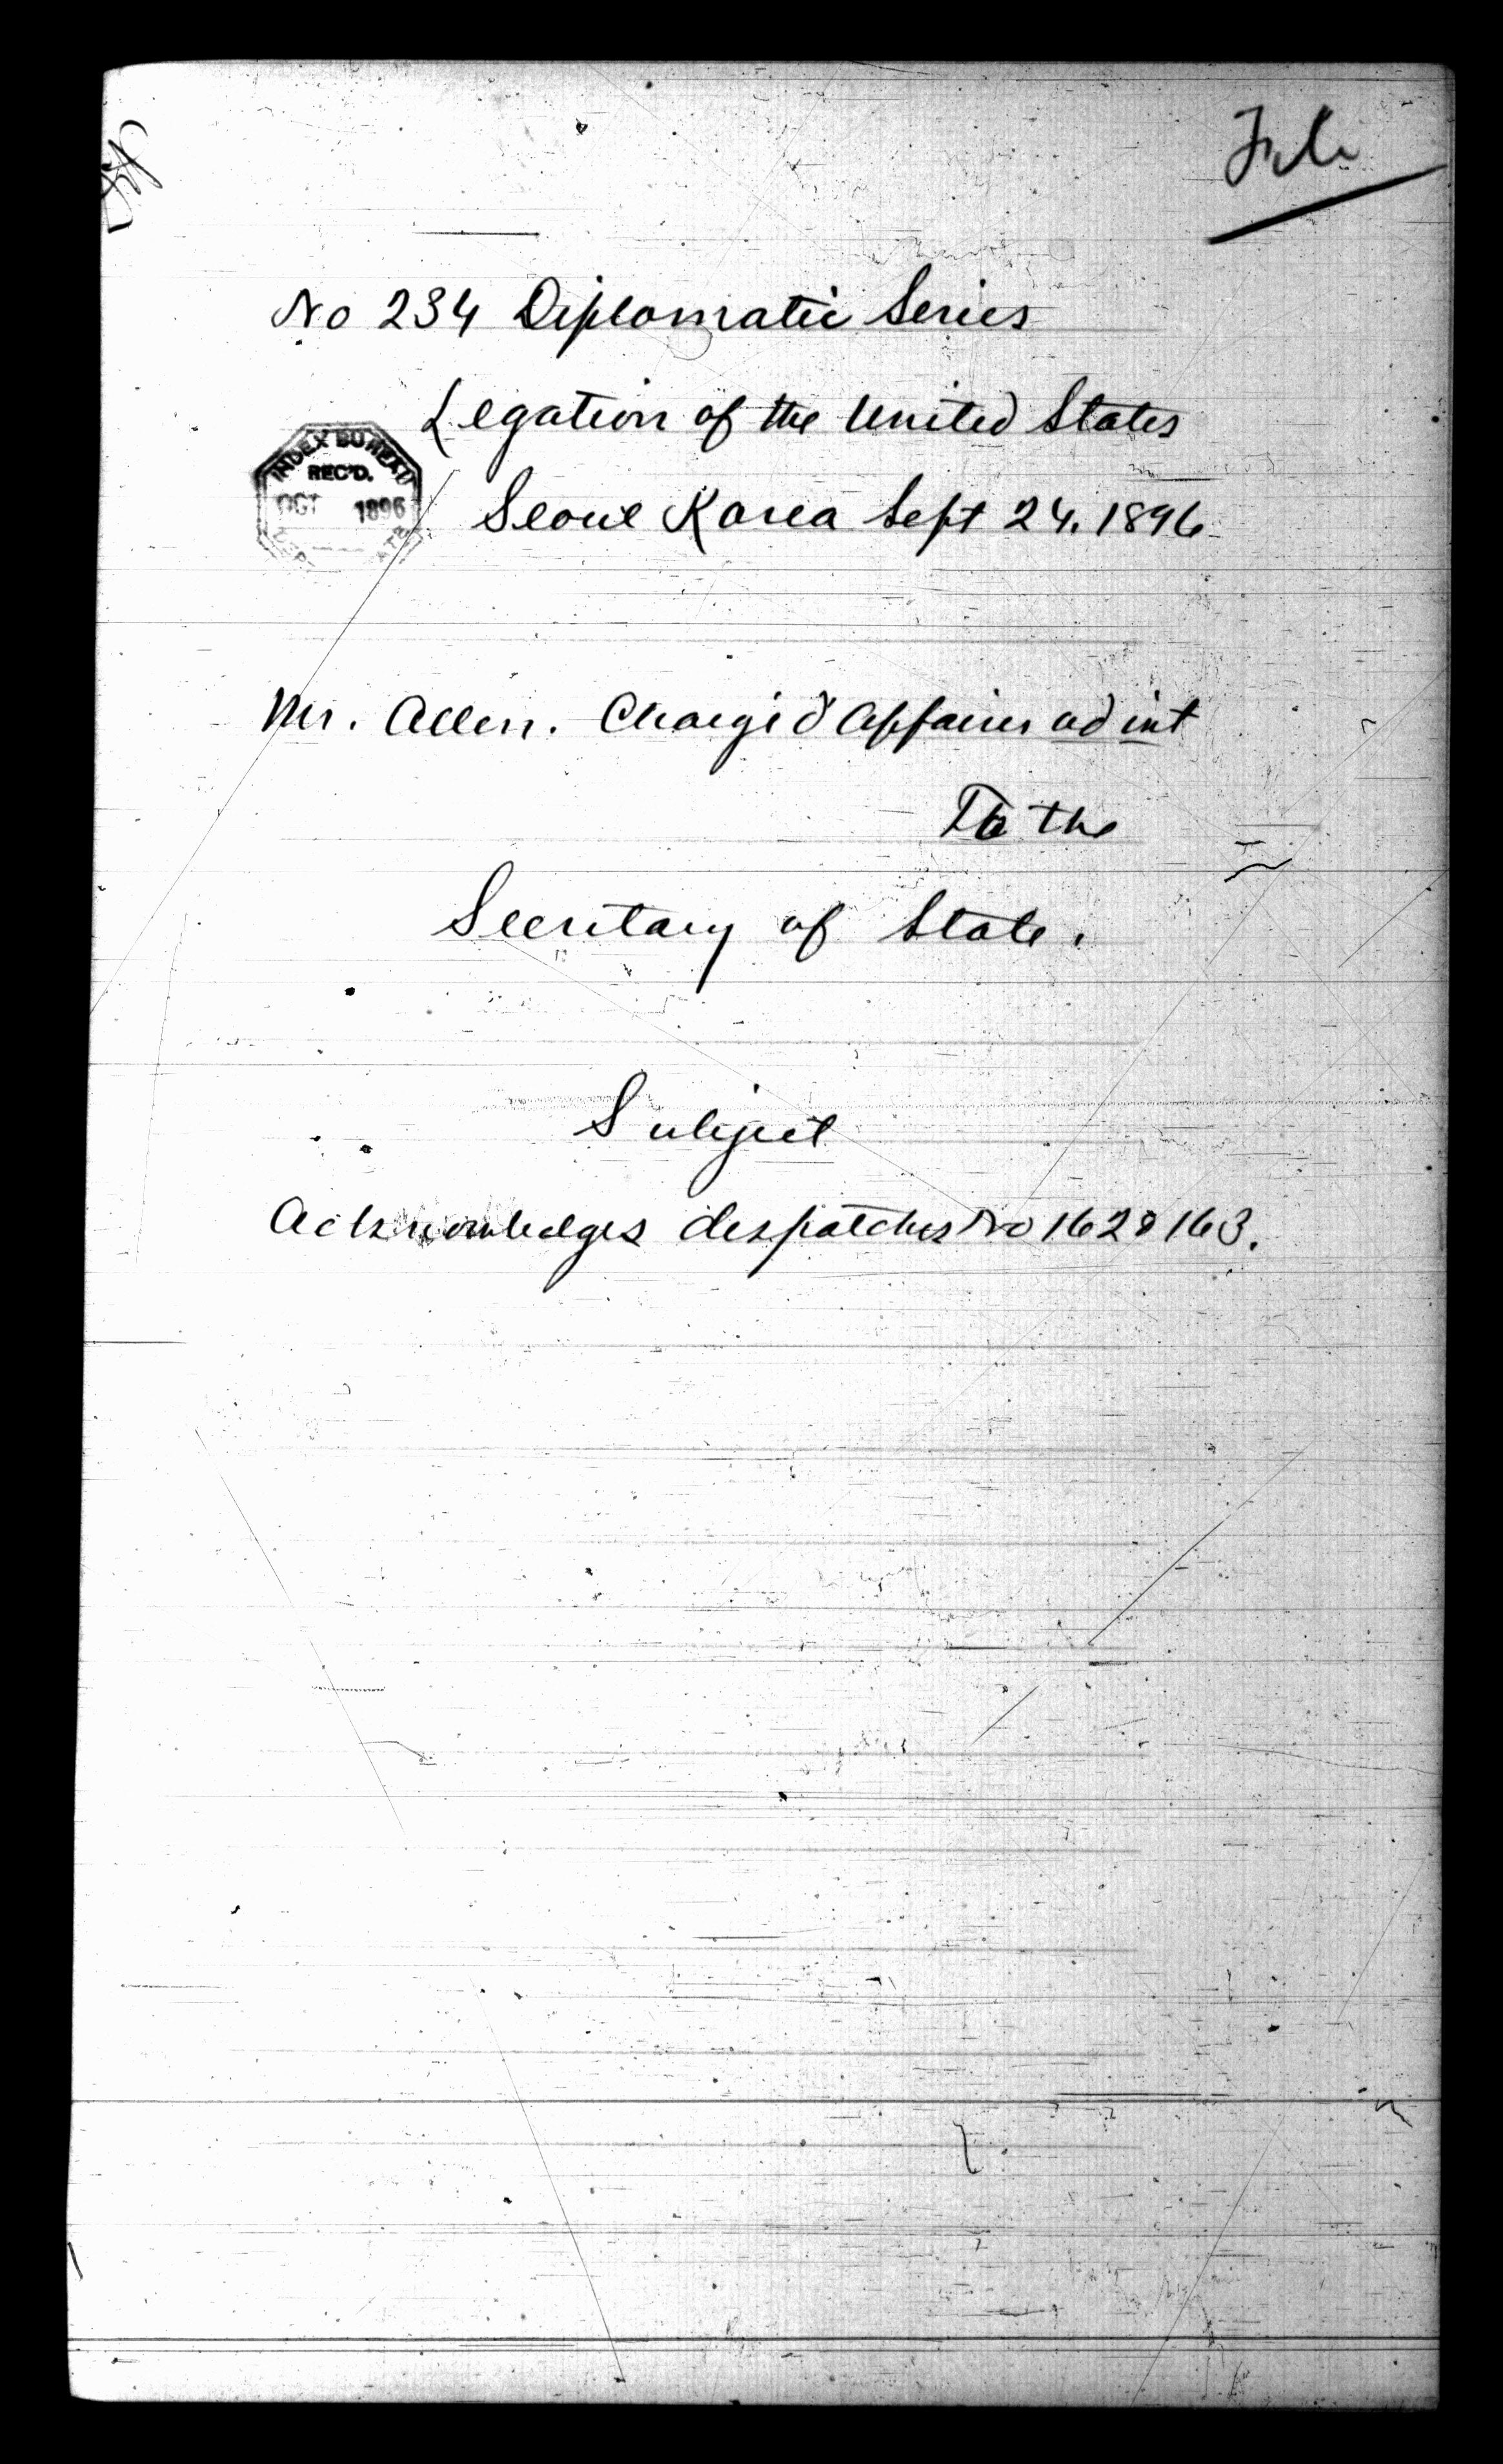 File
No 234 Diplomatic Series
Legation of the United States
INDEX BUREAU
REC'D.
OCT 1896
Seoul Korea Sept 24, 1896
Mr. Allen. Chargé d'Affaires ad int
To the
Secretary of State.
Subject
Acknowledges despatches No 162 & 163.